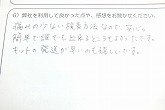 G）弊社を利用して良かった点や、感想をお聞かせください。
痛みの少ない検査方法なので、安心。
簡単で誰でも出来るところもよかったです。
キットの発送が早いのも嬉しいです。